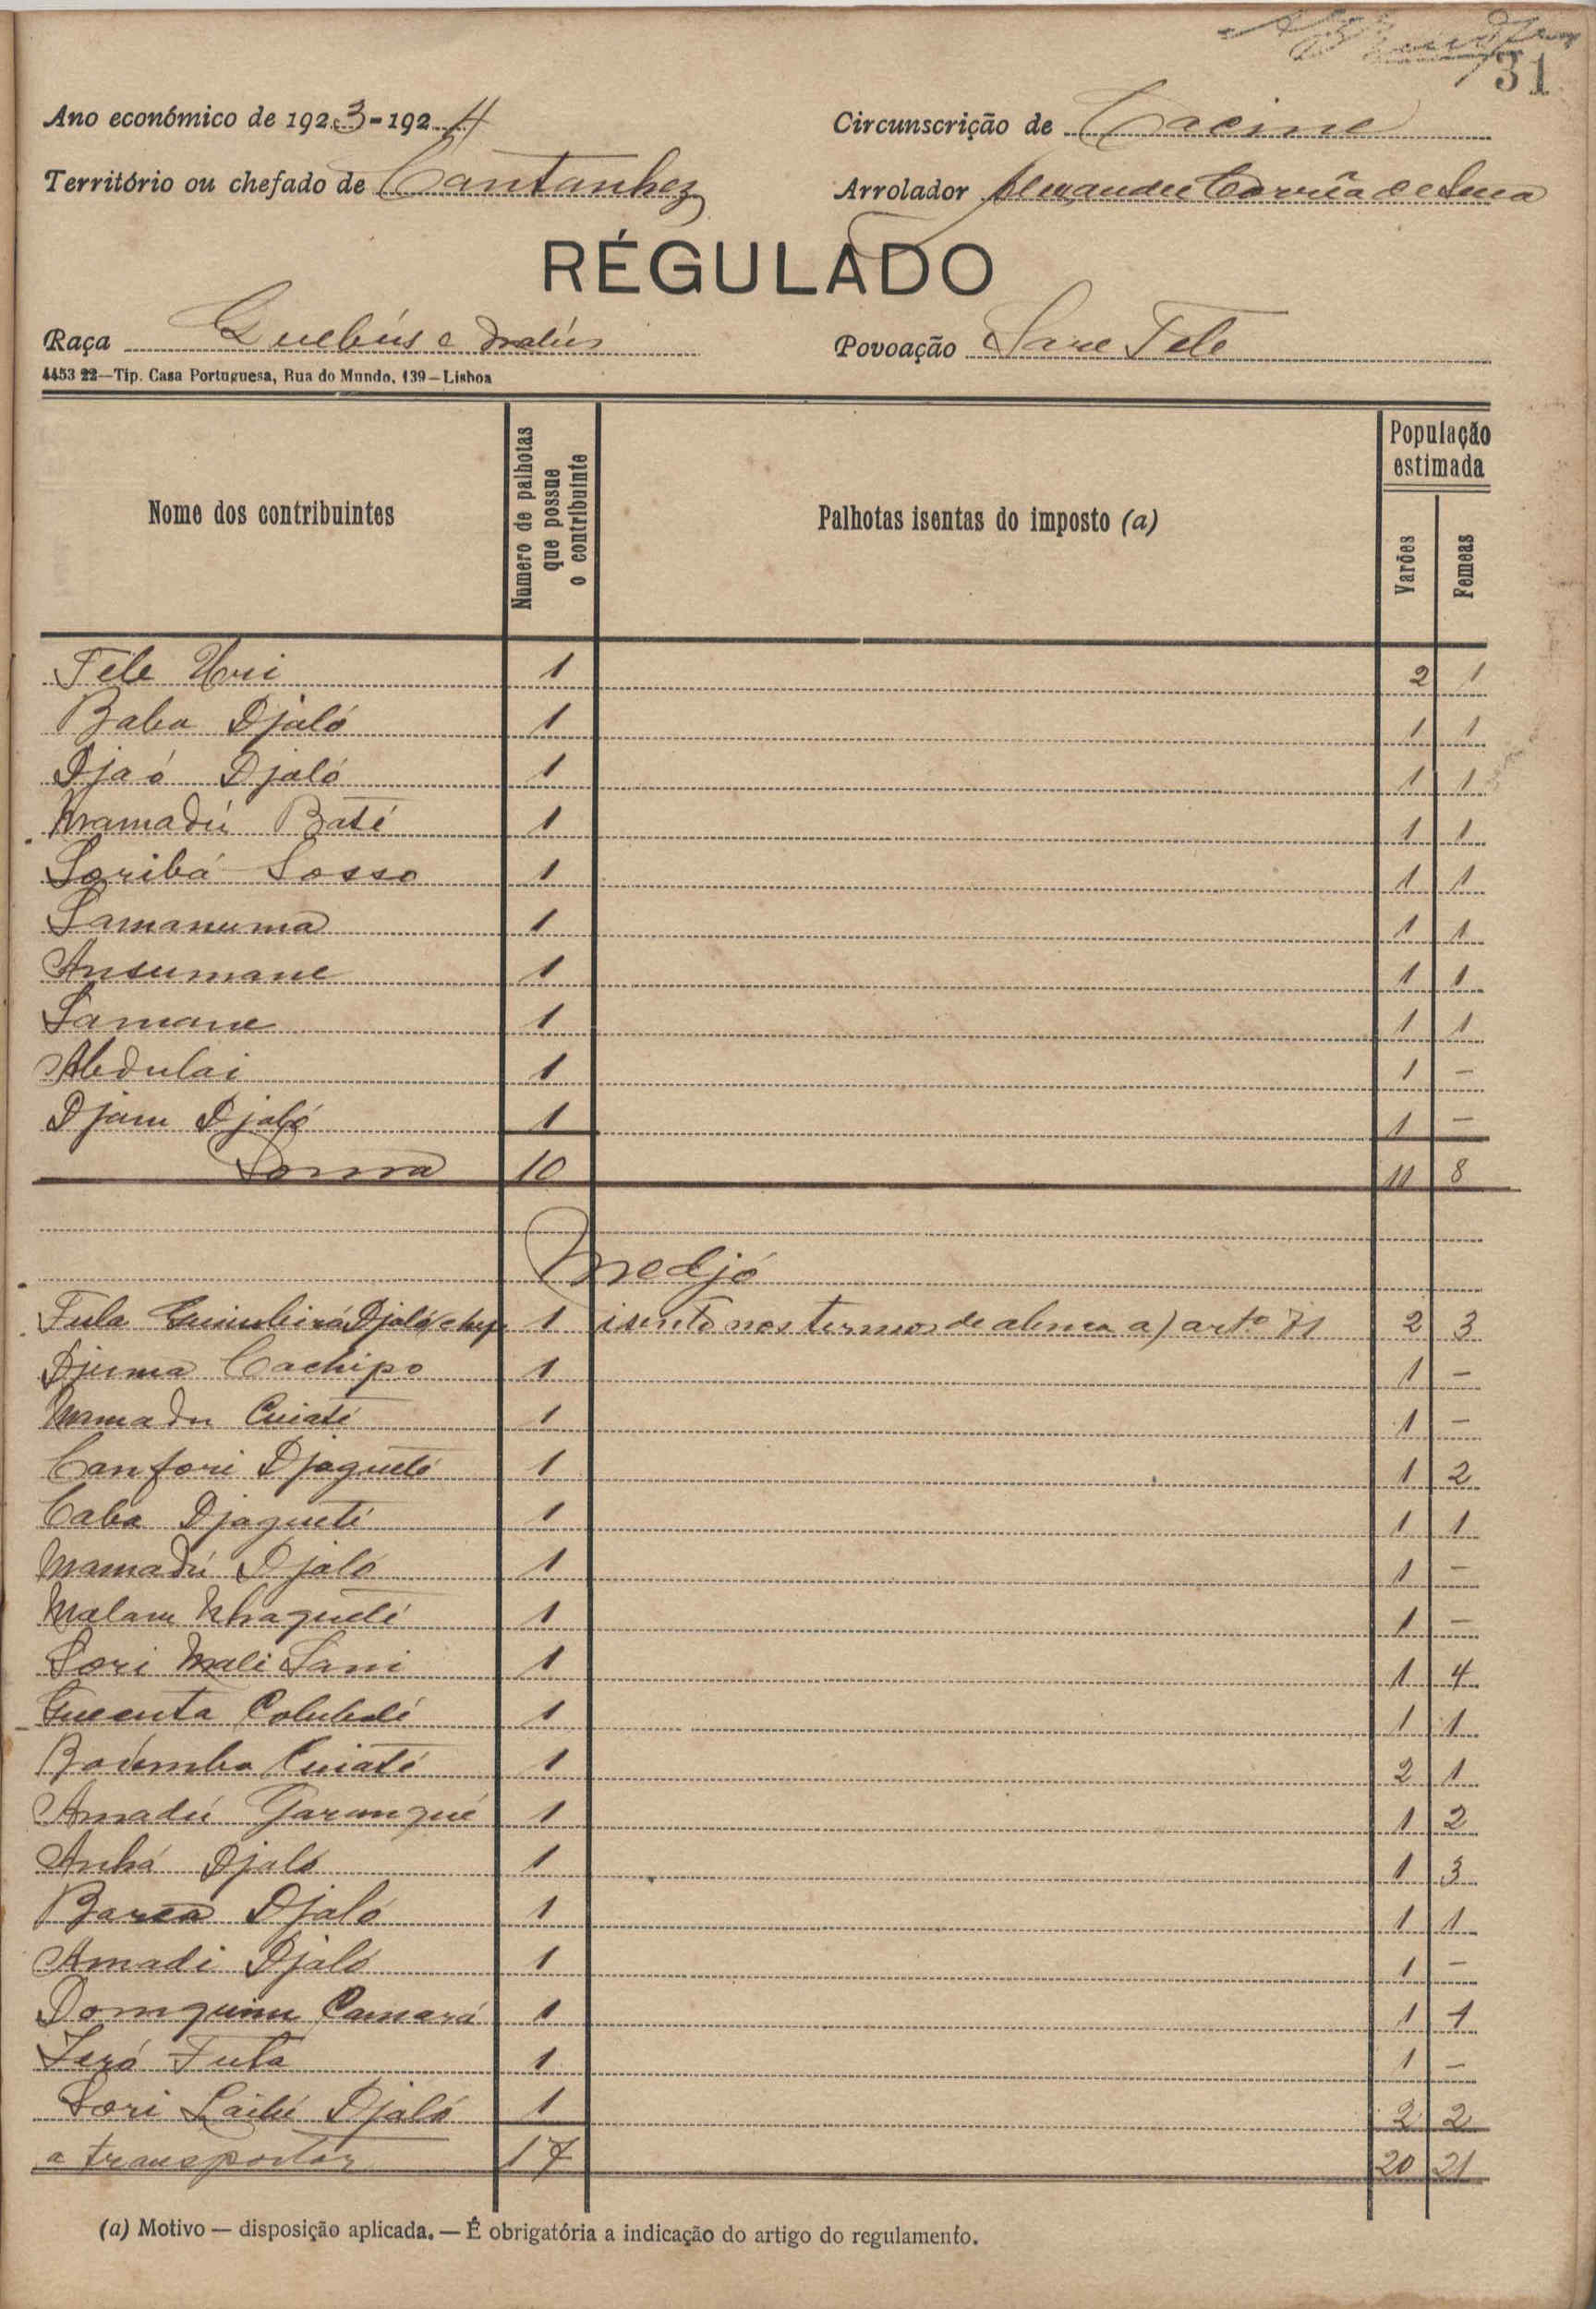 31
Ano económico de 1923-1924 Circunscrição de Cacine
Território ou chefado de Cantanhez Arrolador Alexandre Corrêa de
RÉGULADO
Raça e Nalús Povoação Sare Tele
4453 22—Tip. Casa Portuguesa, Rua do Mundo, 139—Lisboa
Nome dos contribuintes Numero de palhotas que possue o contribuinte Palhotas isentas do imposto (a) População estimada Varões Femeas
Tele Uri 1 2 1
Baba Djaló 1 1 1
Djaó Djaló 1 1 1
Mamadú Baté 1 1 1
Soribá Sosso 1 1 1
Samanuma 1 1 1
Ansumane 1 1 1
Samane 1 1 1
Abdulai 1 1 -
Djam Djaló 1 1 -
Soma 10 11 8
Medjó
Fula Djaló chefe 1 isento nos termos de alinea a) artº 71 2 3
Djuma Cachipo 1 1 -
Mamadu Cuiaté 1 1 -
Canfori Djagueté 1 1 2
Caba Djagueté 1 1 1
Mamadú Djaló 1 1 -
Malam 1 1 -
Sori Mali Sani 1 1 4
Colubali 1 1 1
Cuiaté 1 2 1
Amadú 1 1 2
Anhá Djaló 1 1 3
Djaló 1 1 1
Amadi Djaló 1 1 -
Camará 1 1 1
Ieró Fula 1 1 -
Sori Djaló 1 2 2
a transportar 17 20 21
(a) Motivo — disposição aplicada. — É obrigatória a indicação do artigo do regulamento.